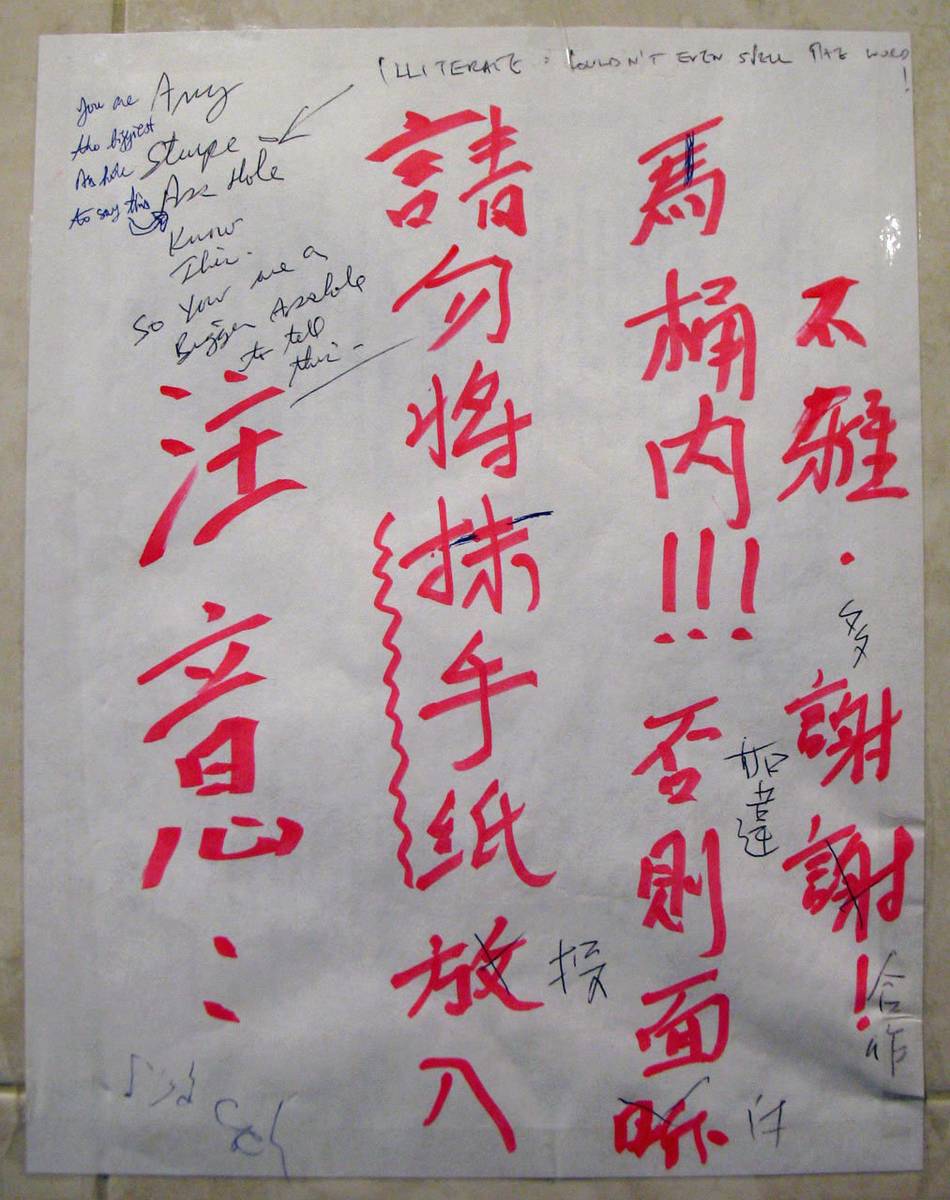 ILLITERATE: COULDN'T EVEN SPELL THE WORD!
You are
the biggest
Asshole
to say this
Any
Stupe
Ass Hole
Know
This.
So You are a
Bigger Asshole
to tell
this.
注意：
請勿將抹手紙放入
投
馬桶內!!! 否則面
不雅.謝謝!
多
合作